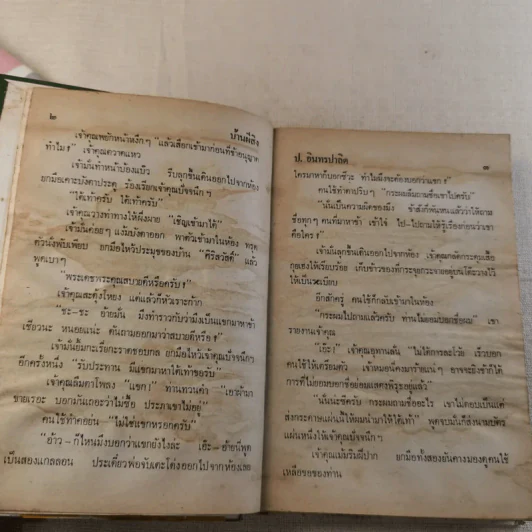 ๒
บ้านผีสิง
เจ้าคุณพยักหน้าหงึกๆ "แล้วเสือกเข้ามาก่อนที่ข้าอนุญาต
ทำไม?" เจ้าคุณตวาดแหว
เจ้ามั่นทำหน้าบ้องแบ๊ว รีบลุกขึ้นเดินออกไปจากห้อง
ยกมือเคาะบังตาประตู ร้องเรียกเจ้าคุณปัจจนึกฯ
"ใต้เท้าครับ ใต้เท้าครับ"
เจ้าคุณวางท่าทางให้ผึ่งผาย "เชิญเข้ามาได้"
เจ้ามั่นค่อยๆ แง้มบังตาออก พาตัวเข้ามาในห้อง ทรุด
ตัวนั่งพับเพียบ ยกมือไหว้ประมุขของบ้าน "ศิริสวัสดิ์" แล้ว
พูดเบาๆ
"พระเดชพระคุณสบายดีหรือครับ?"
เจ้าคุณสะดุ้งโหยง แต่แล้วก็หัวเราะก้าก
"ชะ-ชะ อ้ายมั่น มึงทำราวกับว่ามึงเป็นแขกมาหาข้า
เชียวนะ หนอยแน่ะ ดันถามออกมาว่าสบายดีหรือ!"
เจ้ามั่นยิ้มกะเรี่ยกะราดชอบกล ยกมือไหว้เจ้าคุณปัจจนึกฯ
อีกครั้งหนึ่ง "รับประทาน มีแขกมาหาใต้เท้าขอรับ"
เจ้าคุณลืมตาโพลง "แขก!" ท่านทวนคำ "เอาผ้ามา
ขายเรอะ บอกมันเถอะว่าไม่ซื้อ ประเภาเข้าไม่อยู่"
คนใช้ทำคอย่น "ไม่ใช่แขกหรอกครับ"
"อ้าว - ก็ไหนมึงบอกว่าแขกยังไงล่ะ เอ๊ะ- อ้ายนี่พูด
เป็นสองแกลลอน ประเดี๋ยวพ่อจับเตะโด่งออกไปจากห้องเลย
ป. อินทรปาลิต
๓
ใครมาหาก็บอกซีวะ ทำไมมึงจะต้องบอกว่าแขก!"
คนใช้ทำตาปริบๆ "กระผมลืมถามชื่อเขาไปครับ"
"นั่นเป็นความผิดของมึง ข้าสั่งกำชับหนแล้วว่าให้ถาม
ชื่อทุกๆ คนที่มาหาข้า เข้าใจ ไป-ไปถามให้รู้เรื่องก่อนว่าเขา
คือใคร!"
เจ้ามั่นลุกขึ้นเดินออกไปจากห้อง เจ้าคุณกลัดกระดุมเสื้อ
กุยเฮงให้เรียบร้อย เก็บข้าวของที่กระจุยกระจายอยู่บนโต๊ะวางไว้
ให้เป็นระเบียบ
อีกสักครู่ คนใช้ก็กลับเข้ามาในห้อง
"กระผมไปถามแล้วครับ ท่านไม่ยอมบอกชื่อผม" เขา
รายงานเจ้าคุณ
"เอ๊ะ!" เจ้าคุณอุทานลั่น "ไม่ได้การละโว้ย เร็วบอก
คนใช้ให้เตรียมตัว เจ้าหมอนี่คงมาร้ายแน่ๆ อาจจะยิงข้าก็ได้
การที่ไม่ยอมบอกชื่อย่อมแสดงพิรุธอยู่แล้ว"
"นั่นน่ะซีครับ กระผมถามชื่ออะไร เขาไม่ตอบเป็นแต่
ส่งกระดาษแผ่นนี้ให้ผมนำมาให้ใต้เท้า" พูดจบมั่นก็ส่งนามบัตร
แผ่นหนึ่งให้เจ้าคุณปัจจนึกฯ
เจ้าคุณเม้มริมฝีปาก ยกมือทั้งสองยันคางมองดูคนใช้
เหลือขอของท่าน